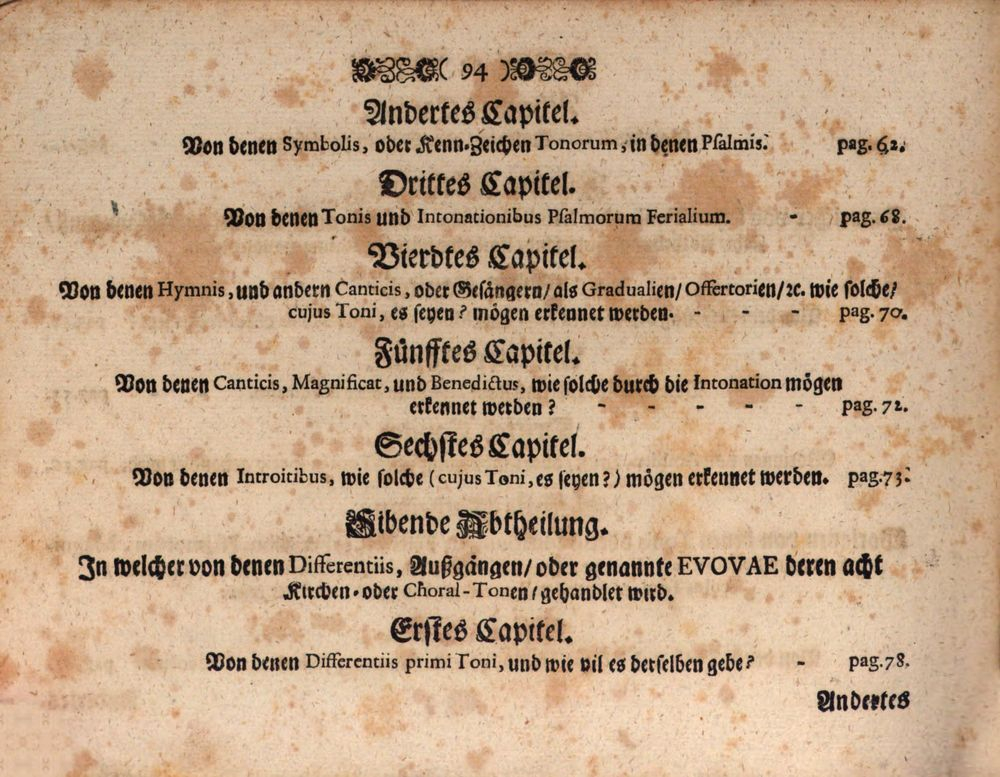 ( 94 )
Andertes Capitel.
Von denen Symbolis, oder Kenn-Zeichen Tonorum, in denen Psalmis. pag. 62.
Drittes Capitel.
Von denen Tonis und Intonationibus Psalmorum Ferialium. - pag. 68.
Vierdtes Capitel.
Von denen Hymnis, und andern Canticis, oder Gesängern/ als Gradualien/ Offertorien/ ꝛc. wie solche/
cujus Toni, es seyen? mögen erkennet werden. - - - pag. 70.
Fünfftes Capitel.
Von denen Canticis, Magnificat, und Benedictus, wie solche durch die Intonation mögen
erkennet werden? - - - - - pag. 72.
Sechstes Capitel.
Von denen Introitibus, wie solche (cujus Toni, es seyen?) mögen erkennet werden. pag. 73.
Sibende Abtheilung.
In welcher von denen Differentiis, Außgängen/ oder genannte EVOVAE deren acht
Kirchen- oder Choral-Tonen/ gehandlet wird.
Erstes Capitel.
Von denen Differentiis primi Toni, und wie vil es derselben gebe? - pag. 78.
Andertes